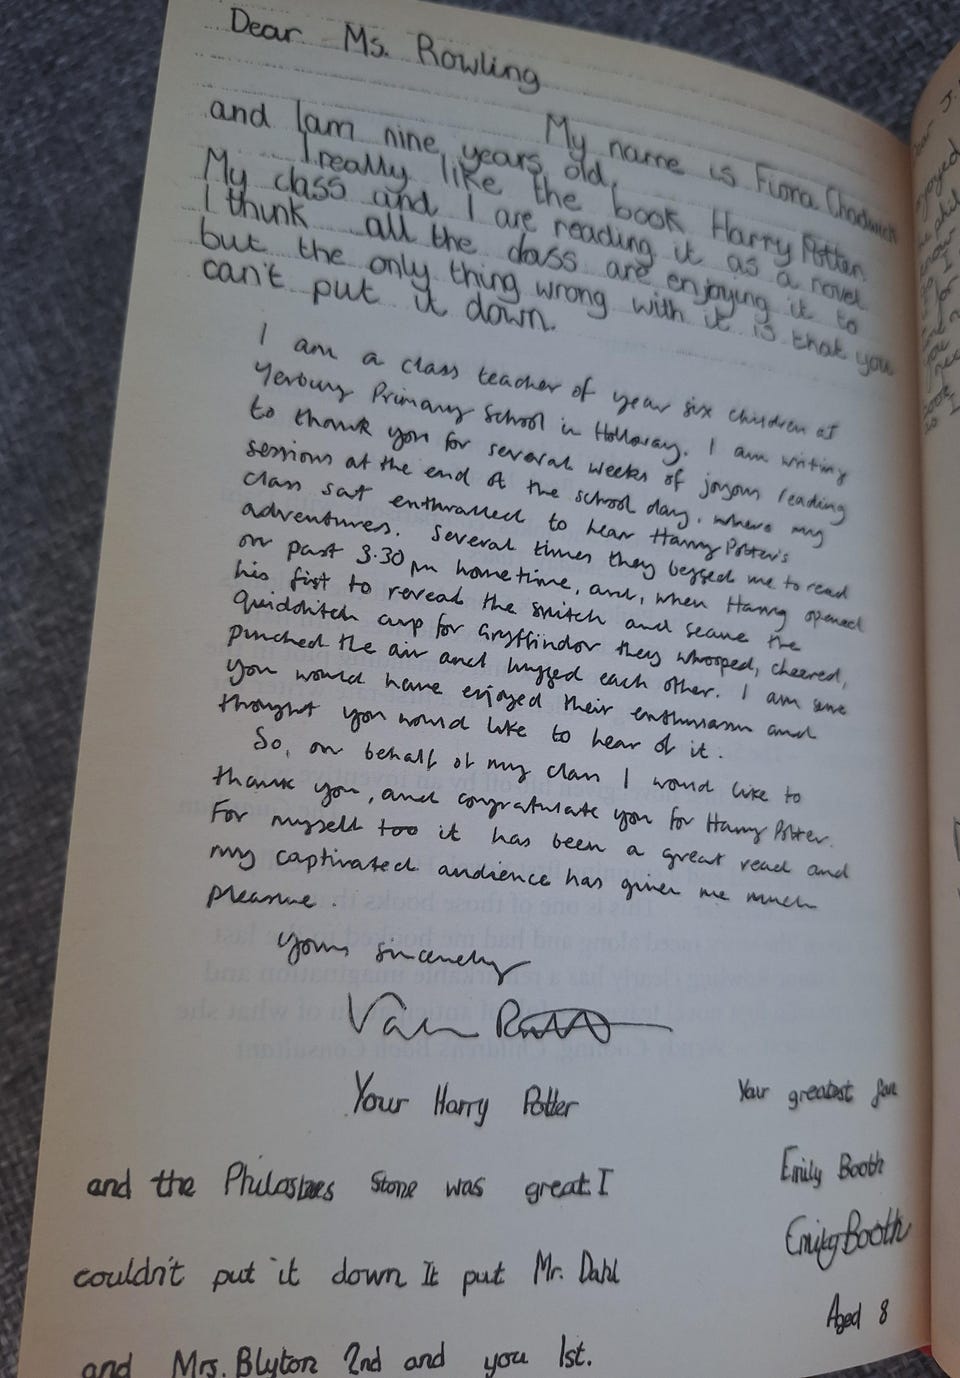 Dear Ms. Rowling
My name is Fiona Chadwick
and Iam nine years old,
I really like the book Harry Potter.
My class and I are reading it as a novel
I think all the class are enjoying it to
but the only thing wrong with it is that you
can't put it down.
I am a class teacher of year six children at
Yerbury Primary School in Holloway. I am writing
to thank you for several weeks of joyous reading
sessions at the end of the school day, where my
class sat enthralled to hear Harry Potter's
adventures. Several times they begged me to read
on past 3.30 pm hometime, and, when Harry opened
his fist to reveal the snitch and secure the
Quidditch cup for Gryffindor they whooped, cheered,
punched the air and hugged each other. I am sure
you would have enjoyed their enthusiasm and
thought you would like to hear of it.
So, on behalf of my class I would like to
thank you, and congratulate you for Harry Potter.
For myself too it has been a great read and
my captivated audience has given me much
pleasure.
Yours sincerely
Your Harry Potter
and the Philosters Stone was great I
couldn't put it down It put Mr. Dahl
and Mrs. Blyton 2nd and you 1st.
Your greatest fan
Emily Booth
Emily Booth
Aged 8